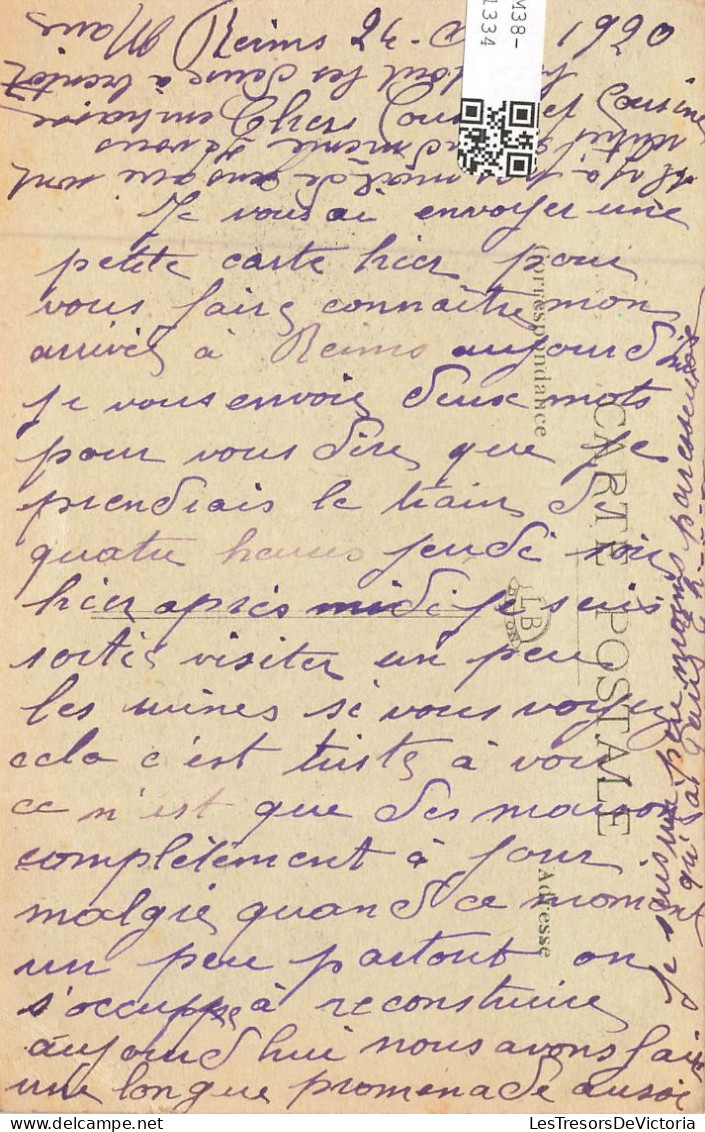 Reims 24 1920
Chers et Cousine
Je vous ai envoyer une
petite carte hier pour
vous faire connaître mon
arrivée à Reims aujourd'hui
je vous envoie deux mots
pour vous dire que je
prendrais le train de
quatre heures jeudi soir
hier après midi je suis
sortie visiter un peu
les ruines si vous voyez
cela c'est triste à voir
ce n'est que des maison
complètement à jour
malgré quand ce moment
un peu partout on
s'occupe à reconstruire
aujourd'hui nous avons fait
une longue promenade aussi
je suis un peu moins paresseuse
qu'à Paris
tout les deux à bientôt
M38-
1334
Correspondance
CARTE POSTALE
Adresse
LesTresorsDeVictoria
LesTresorsDeVictoria.com